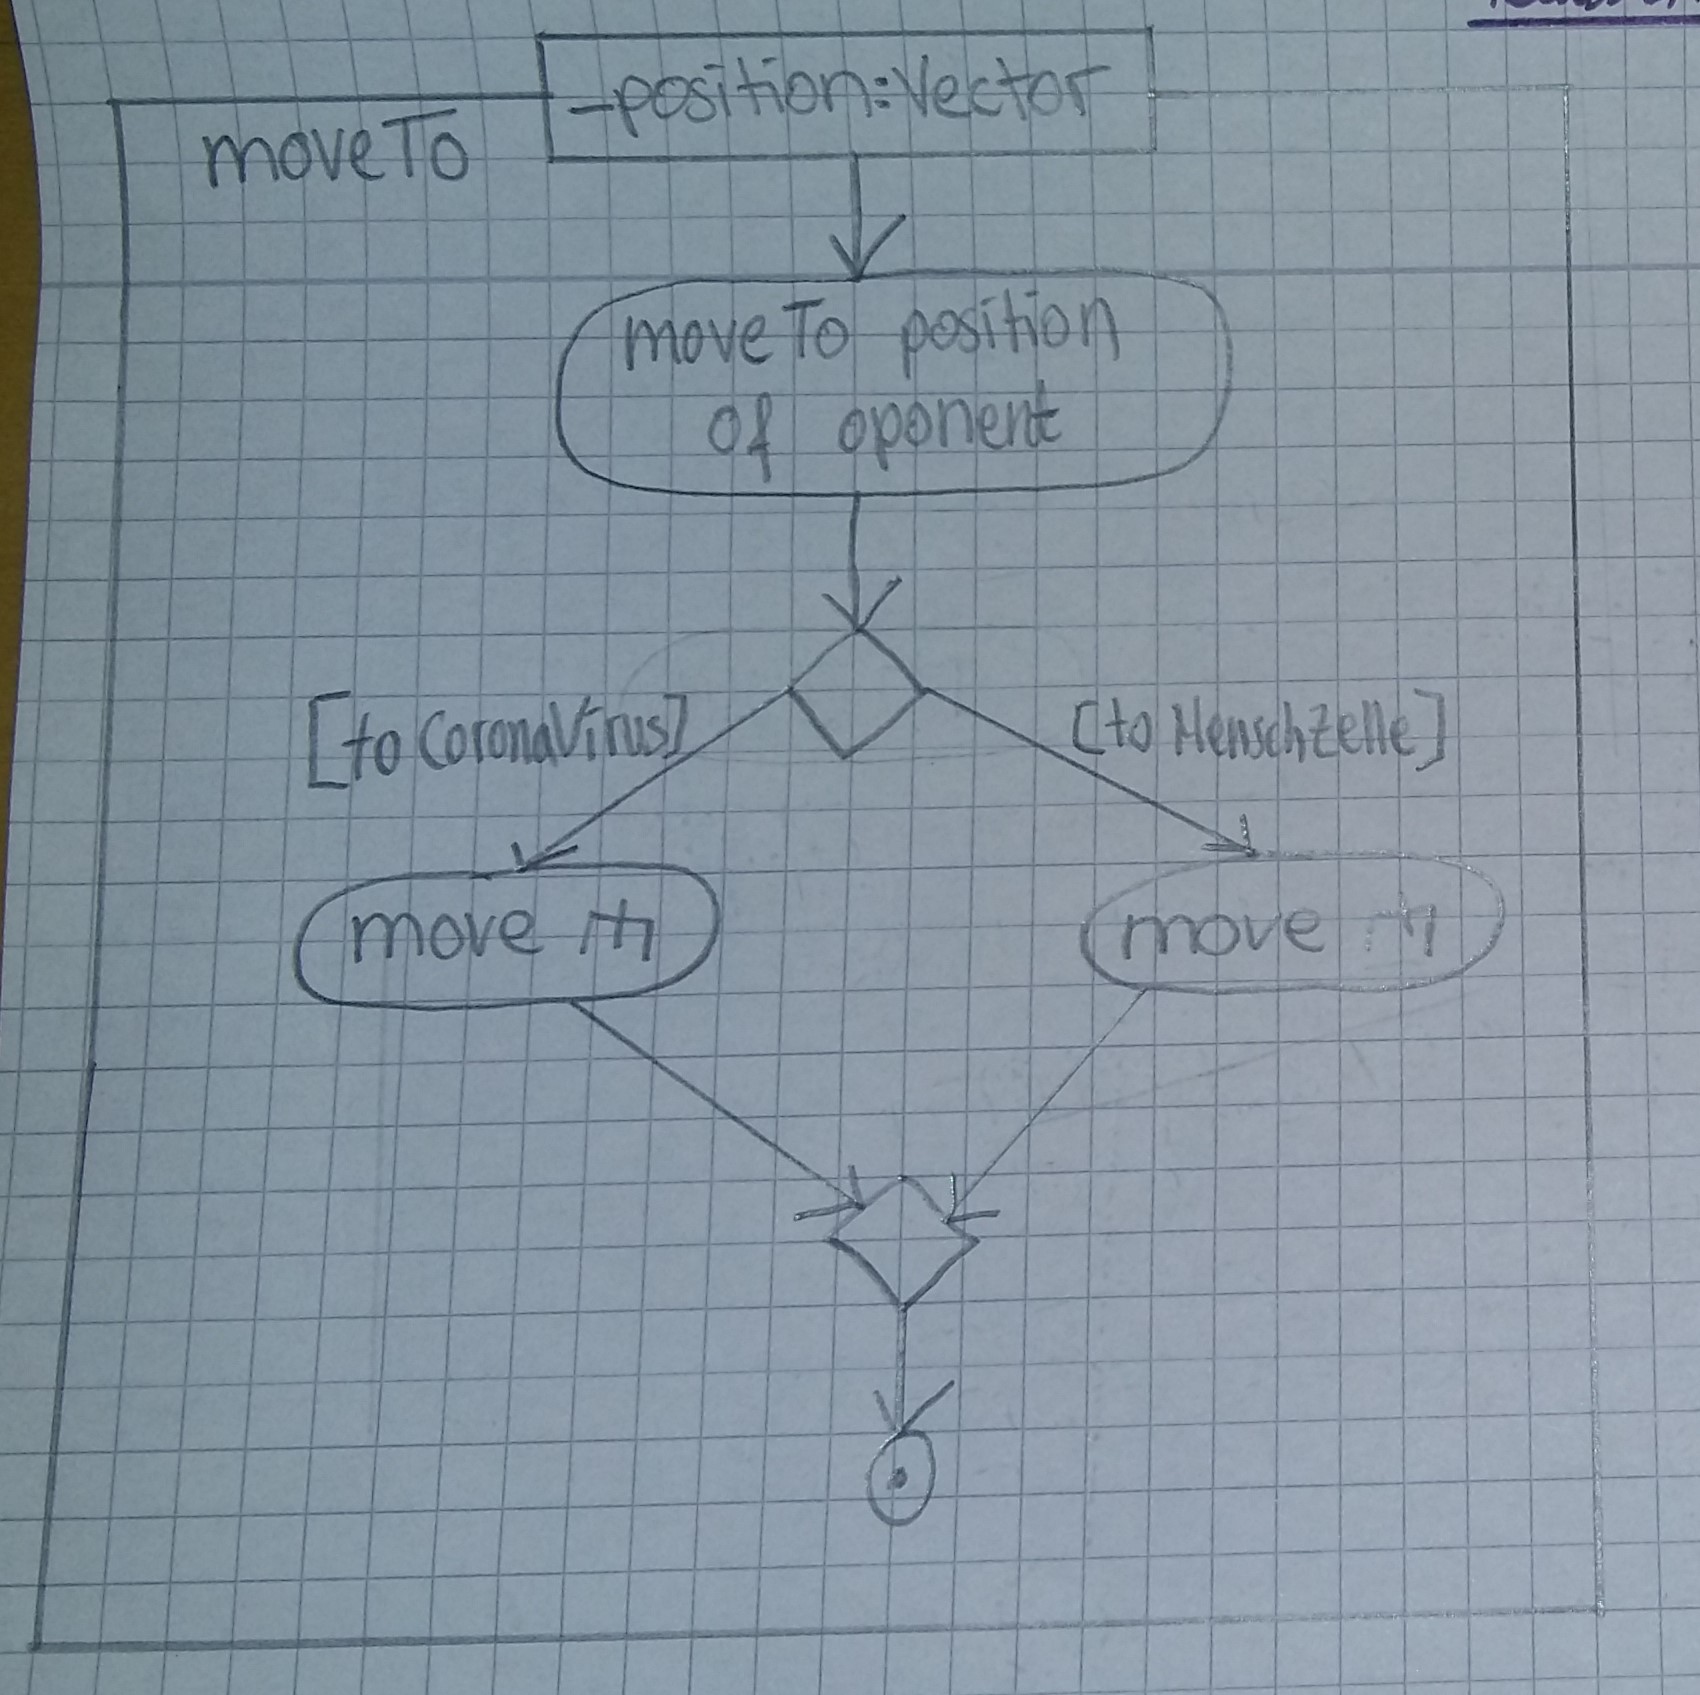 -position:Vector
moveTo
moveTo position
of oponent
[to CoronaVirus]
[to Menschzelle]
move
move